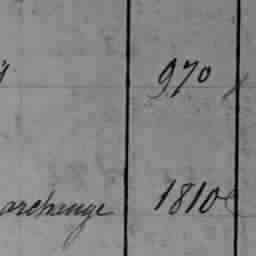 970
archange 1810